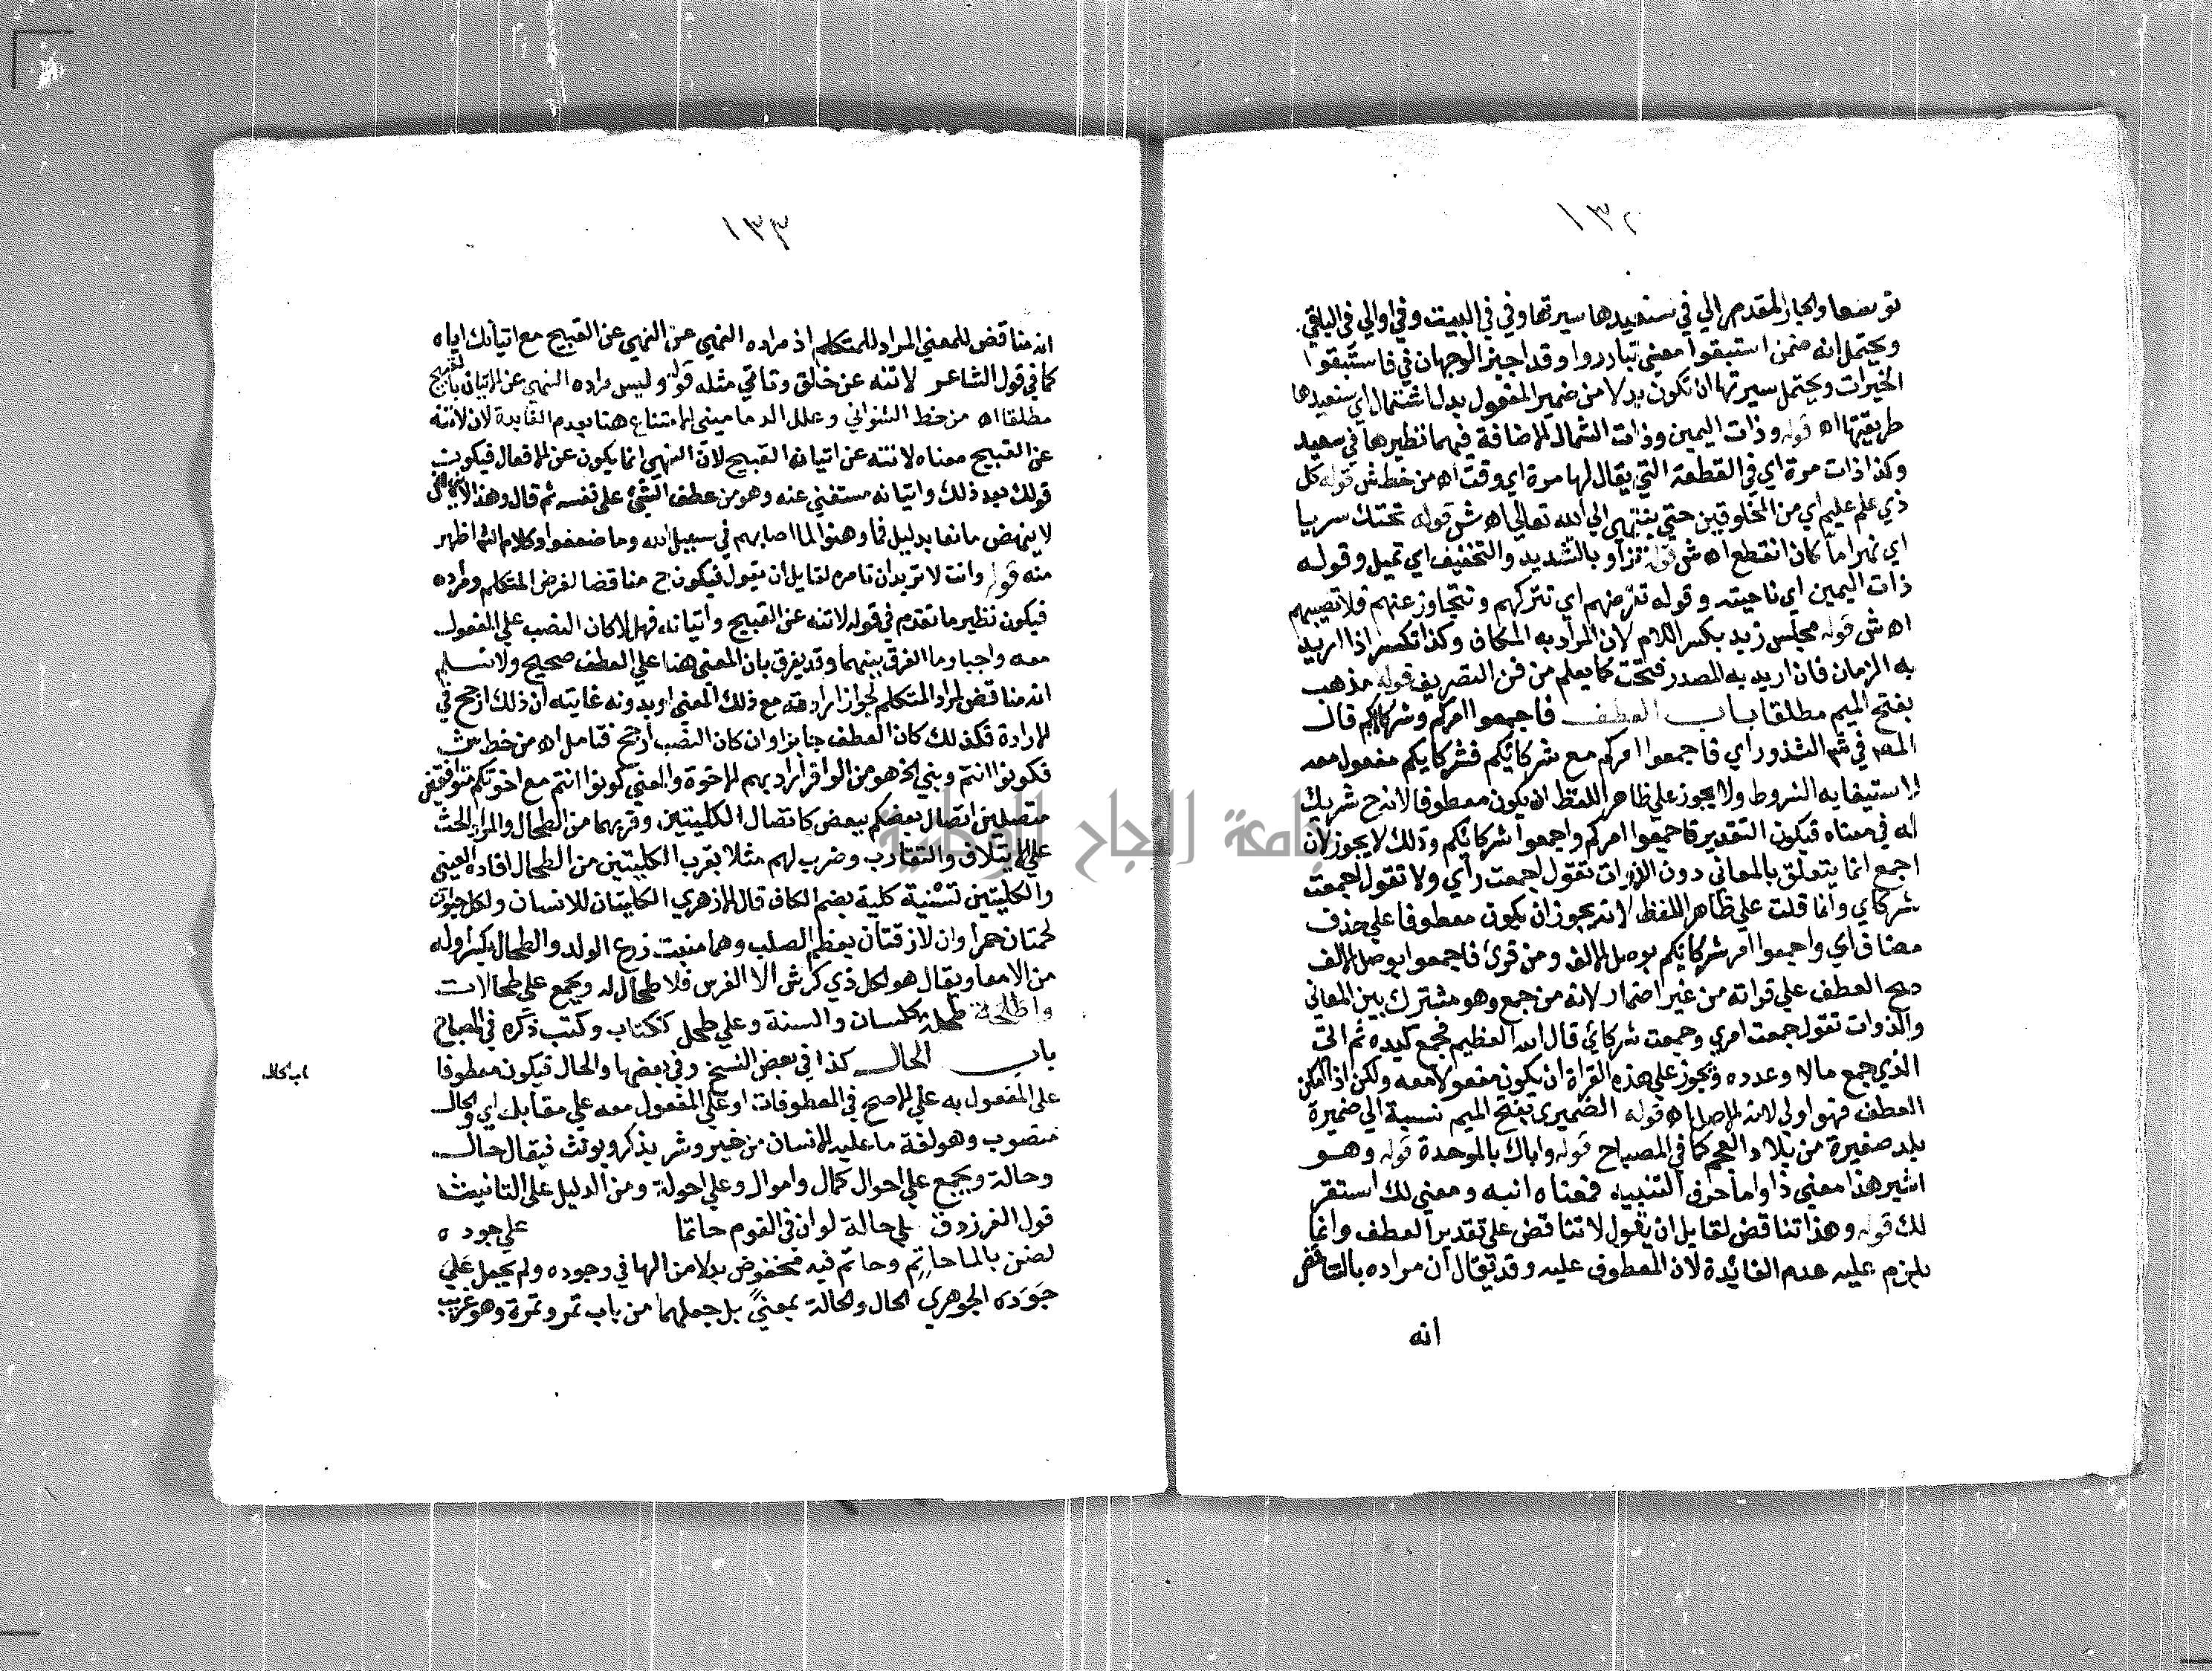 ١٣٢
توسعا والجار المقدم الي في سنعيدها سيرتها وفي في البيت وفي اوالي في الباقي
ويحتمل انه ضمن استبقوا معني تبادروا وقد اجيز الوجهان في فاستبقوا
الخيرات ويحتمل سيرتها ان تكون بدلا من ضمير المفعول بدل اشتمال اي سنعيدها
طريقتها اه قوله وذات اليمين وذات الشمال الاضافة فيهما نظيرها في سعيد
وكذا ذات مرة اي في القطعة التي يقال لها مرة اي وقت اه من خط ش قوله كل
ذي علم عليم اي من المخلوقين حتي ينتهي الي الله تعالي اه ش قوله تحتك سريا
اي نهرا ما كان انقطع اه ش قوله تزاور بالتشديد والتخفيف اي تميل وقوله
ذات اليمين اي ناحيته وقوله تقرضهم اي تتركهم وتتجاوز عنهم فلا تصيبهم
اه ش قوله مجلس زيد بكسر اللام لان المراد به المكان وكذا تكسر اذا اريد
به الزمان فان اريد به المصدر فتحت كما يعلم من فن التصريف قوله مذهب
بفتح الميم مطلقا باب العطف فاجمعوا امركم وشركاكم قال
المص في شرح الشذور اي فاجمعوا امركم مع شركائكم فشركايكم مفعول معه
لاستيفايه الشروط ولا يجوز علي ظاهر اللفظ ان يكون معطوفا لانه ح شريك
له في معناه فيكون التقدير فاجمعوا امركم واجمعوا شركائكم وذلك لا يجوز لان
اجمع انما يتعلق بالمعاني دون الذوات تقول اجمعت رأي ولا تقول اجمعت
شركاي وانما قلت علي ظاهر اللفظ لانه يجوز ان يكون معطوفا علي حذف
مضاف اي واجمعوا امر شركائكم بوصل الالف ومن قرئ فاجمعوا بوصل الالف
صح العطف علي قراته من غير اضمار لانه من جمع وهو مشترك بين المعاني
والذوات تقول جمعت امري وجمعت شركائي قال الله العظيم فجمع كيده ثم اتي
الذي جمع مالا وعدده ويجوز علي هذه القراة ان يكون مفعولا معه ولكن اذا امكن
العطف فهو اولي لانه الاصل اه قوله الضميري بفتح الميم نسبة الي ضميرة
بلد صغيرة من بلاد العجم كما في المصباح قوله واباك بالموحدة قوله وهو
اشير هذا معني ذا واما حرف التنبيه فمعناه انبه ومعني لك استقر
لك قوله وهذا تناقض لقايل ان يقول لا تناقض علي تقدير العطف وانما
يلزم عليه عدم الفائدة لان المعطوف عليه وقد يقال ان مراده بالتناقض
انه
١٣٣
انه مناقض للمعني المراد للمتكلم اذ مراده النهي عن النهي عن القبيح مع اتيانك اياه
كما في قول الشاعر لا تنه عن خلق وتاتي مثله قوله وليس مراده النهي عن الاتيان بالقبيح
مطلقا اه من خط الشنواني وعلل الدماميني الامتناع هنا بعدم الفايدة لان لا تنه
عن القبيح معناه لا تنه عن اتيانه القبيح لان النهي انما يكون عن الافعال فيكون
قولك بعد ذلك واتيانه مستغني عنه وهو من عطف الشئ علي نفسه ثم قال وهذا
لا ينهض مانعا بدليل فما وهنوا لما اصابهم في سبيل الله وما ضعفوا وكلام الشم اظهر
منه قوله وانت لا تريد ان تامره لقايل ان يقول فيكون ح مناقضا لغرض المتكلم ومراده
فيكون نظير ما تقدم في قوله لا تنه عن القبيح واتيانه فهل لا كان النصب علي المفعول
معه واجبا وما الفرق بينهما وقد يفرق بان المعني هنا علي العطف صحيح ولا نسلم
انه مناقض لمراد المتكلم لجواز ارادته مع ذلك المعني او بدونه غايته ان ذلك ارجح في
الارادة فكذلك كان العطف جايزا وان كان النصب ارجح فتامل اه من خط ش
فكونوا انتم وبني الخ هو من الوافر اراد بهم الاخوة والمعني كونوا انتم مع اخوتكم متوافقين
متصلين اتصال بعضكم ببعض كاتصال الكليتين وقربهما من الطحال والمراد الحث
علي الايتلاف والتقارب وضرب لهم مثلا بقرب الكليتين من الطحال افاده العيني
والكليتين تثنية كلية بضم الكاف قال الازهري الكليتان للانسان ولكل حيوان
لحمتان حمراوان لازقتان بعظم الصلب وهما منبت زرع الولد والطحال بكسر اوله
من الامعا ويقال هو لكل ذي كرش الا الفرس فلا طحال له ويجمع علي طحالات
واطلحة طحلة كلسان والسنة وعلي طحل ككتاب وكتب ذكره في المصباح
باب الحال كذا في بعض النسخ وفي بعضها والحال فيكون معطوفا
على المفعول به علي الاصح في المعطوفات او علي المفعول معه علي مقابله اي والحال
منصوب وهو لغة ما عليه الانسان من خير وشر يذكر ويونث فيقال حال
وحالة ويجمع علي احوال كمال واموال وعلي احولة ومن الدليل على التانيث
قول الفرزدق علي حالة لو ان في القوم حاتما علي جوده
لضن بالماحاتم وحاتم فيه مخفوض بدلا من الها في وجوده ولم يجعل علي
جوده الجوهري الحال والحالة بمعني بل جعلهما من باب تمر وتمرة وهو غريب
باب الحال
جامعة النجاح الوطنية